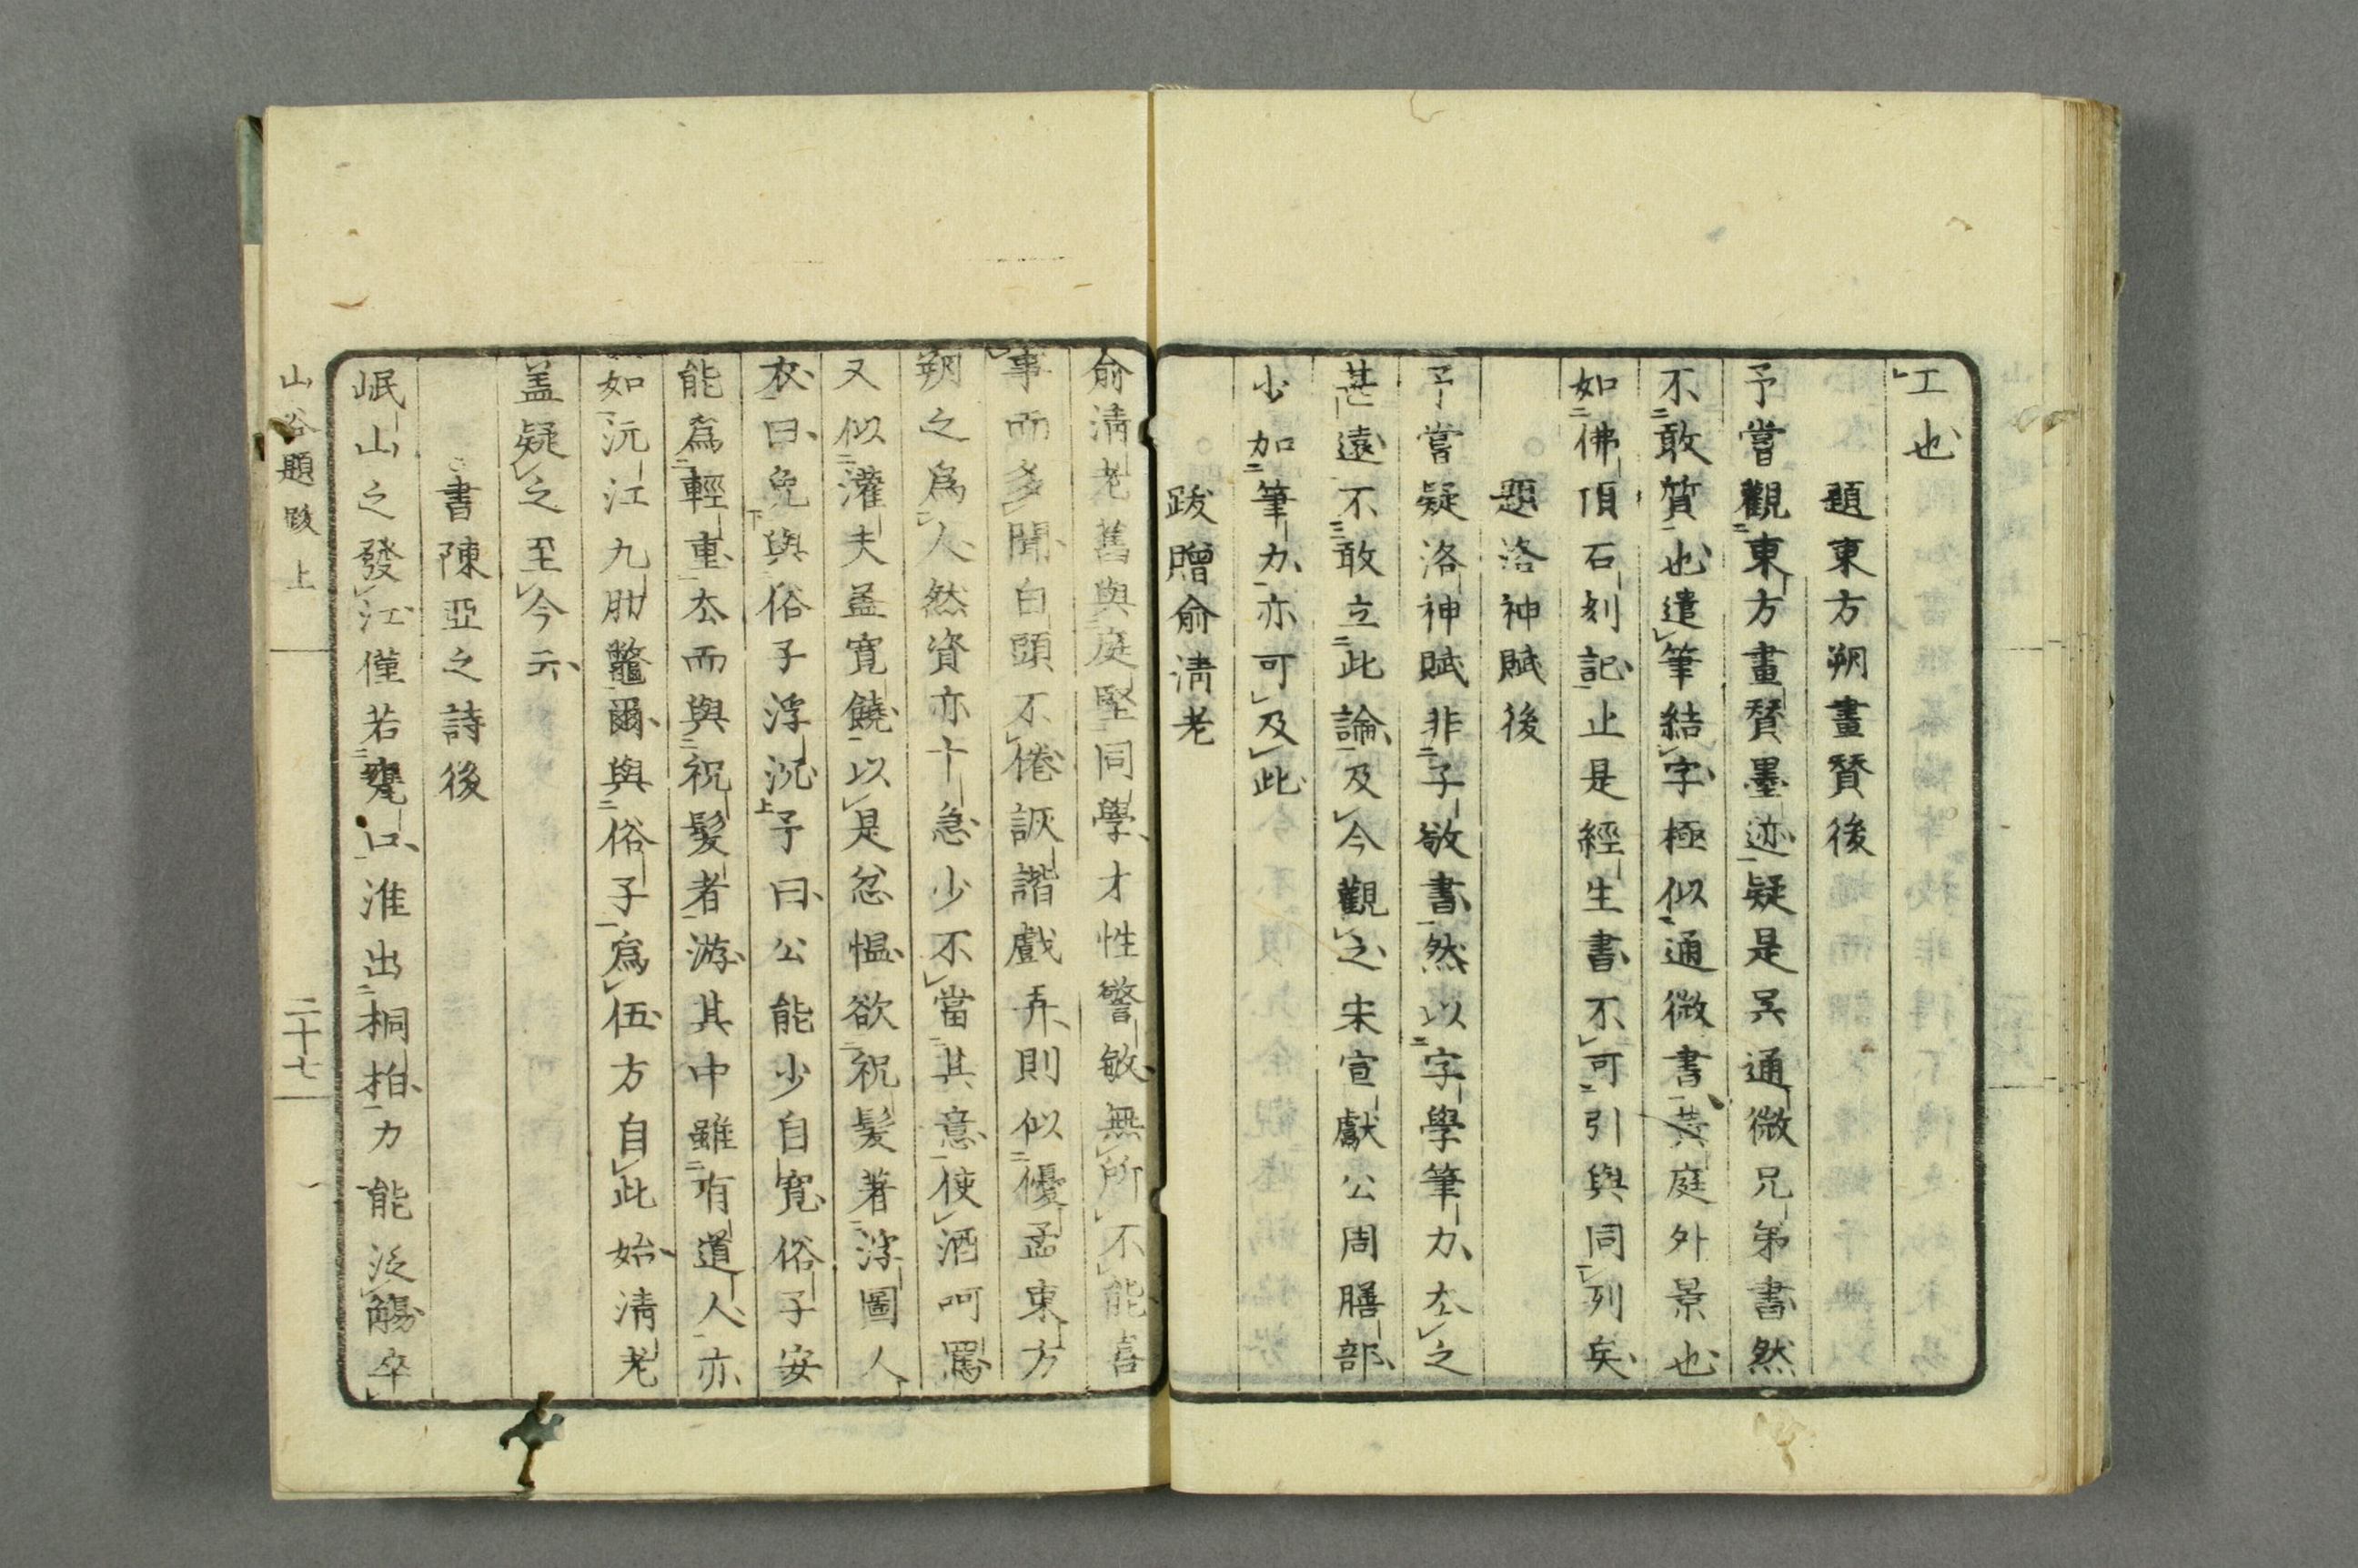 工也
題東方朔畫賛後
予嘗觀東方畫賛墨迹疑是吳通微兄弟書然
不敢質也遣筆結字極似通微書黃庭外景也
如佛頂石刻記止是經生書不可引與同列矣
題洛神賦後
予嘗疑洛神賦非子敬書然以字學筆力去之
甚遠不敢立此論及今觀之宋宣獻公周膳部
少加筆力亦可及此
跋贈俞清老
俞清老舊與庭堅同學才性警敏無所不能喜
事而多聞白頭不倦詼諧戲弄則似優孟東方
朔之為人然資亦十急少不當其意使酒呵罵
又似灌夫盖寬饒以是忿愠欲祝髮著浮圖人
衣曰免與俗子浮沉予曰公能少自寬俗子安
能為輕重去而與祝髮者游其中雖有道人亦
如沅江九肋鼈爾與俗子為伍方自此始清老
盖疑之至今云
書陳亞之詩後
岷山之發江僅若甕口淮出桐柏力能泛觴卒
山谷題跋上
二十七